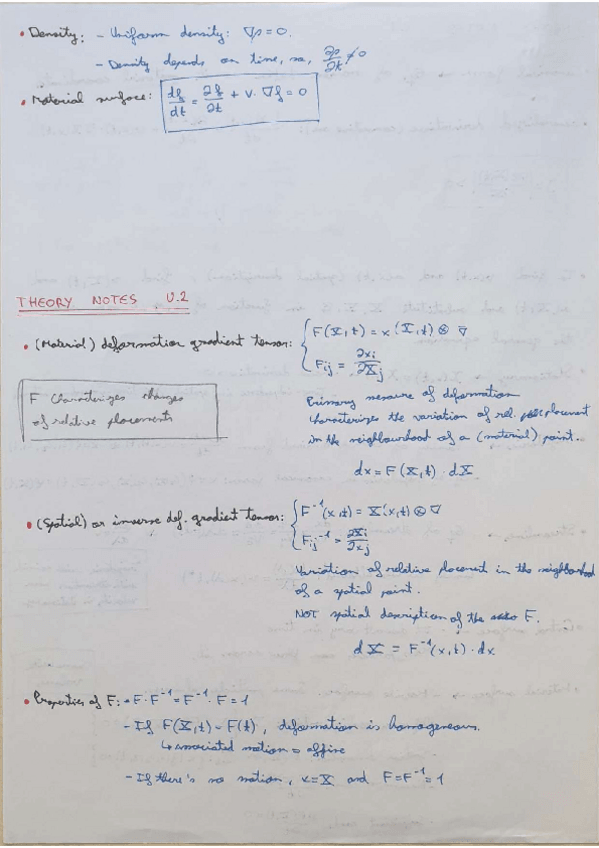 • Density: - Uniform density: ∇ρ = 0.
- Density depends on time, so, ∂ρ/∂t ≠ 0
• Material surface: df/dt = ∂f/∂t + v · ∇f = 0
THEORY NOTES U.2
• (Material) deformation gradient tensor: { F(X,t) = x(X,t) ⊗ ∇
Fij = ∂xi/∂Xj
F characterizes changes
of relative placements
Primary measure of deformation
characterizes the variation of rel. placement
in the neighbourhood of a (material) point.
dx = F(X,t) · dX
• (Spatial) or inverse def. gradient tensor: { F⁻¹(x,t) = X(x,t) ⊗ ∇
Fij⁻¹ = ∂Xi/∂xj
Variation of relative placement in the neighborhood
of a spatial point.
NOT spatial description of the F.
dX = F⁻¹(x,t) · dx
• Properties of F: - F · F⁻¹ = F⁻¹ · F = 1
- If F(X,t) = F(t), deformation is homogeneous.
↳ associated motion = affine
- If there's no motion, x = X and F = F⁻¹ = 1